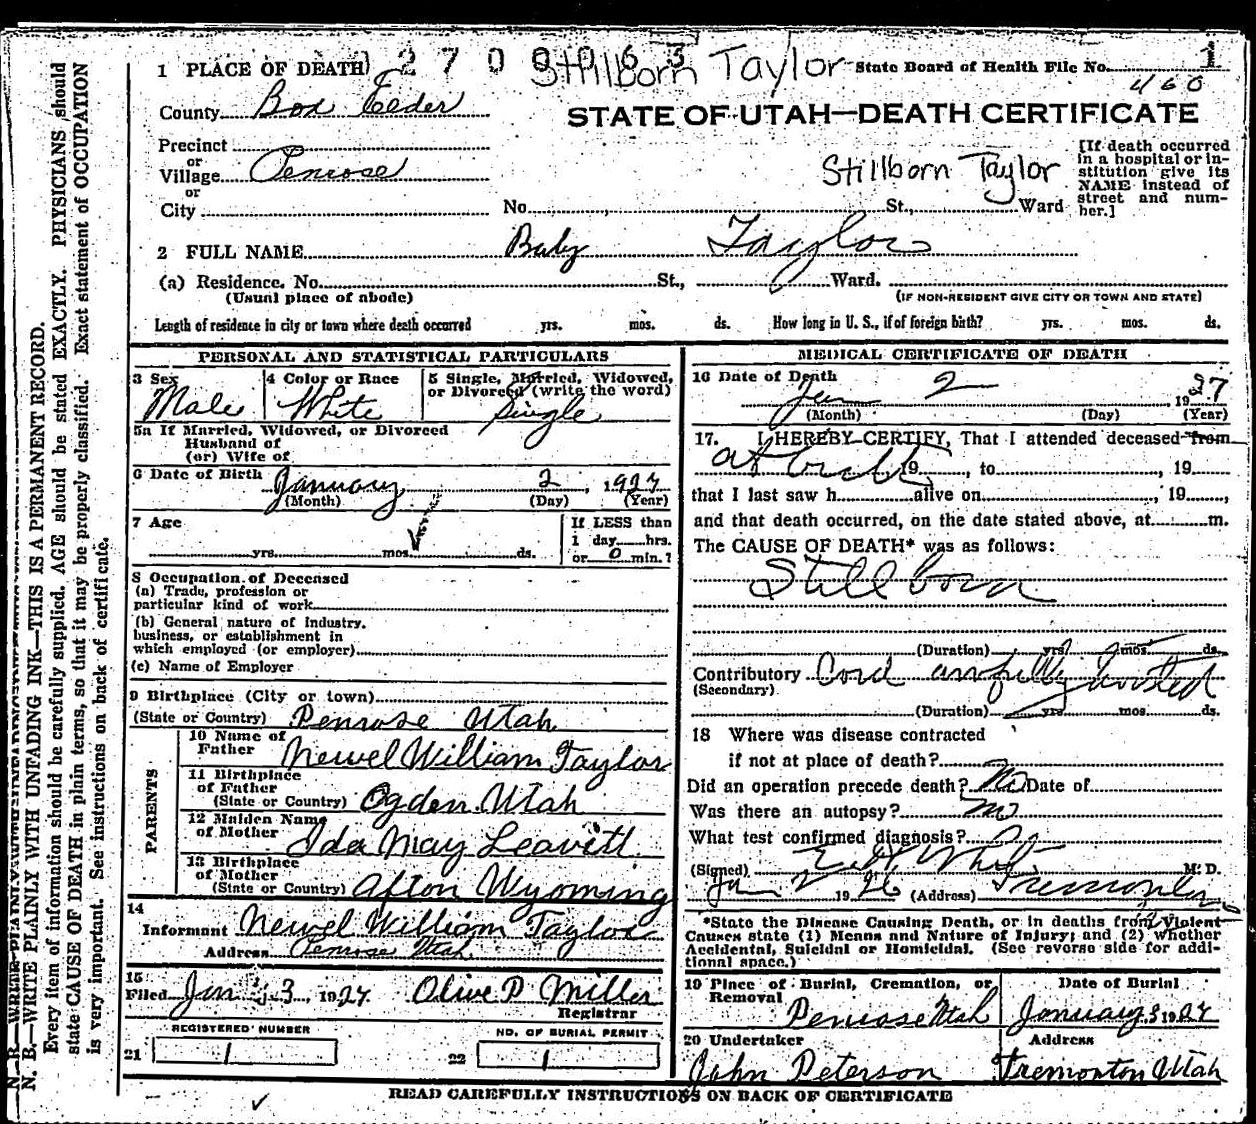 2 7 0 0 0 6 3
1 PLACE OF DEATH Stillborn Taylor State Board of Health File No. 1
460
County Box Elder STATE OF UTAH—DEATH CERTIFICATE
Precinct
or
Village Penrose Stillborn Taylor
or
City No. St., Ward
[If death occurred
in a hospital or in-
stitution give its
NAME instead of
street and num-
ber.]
2 FULL NAME Baby Taylor
(a) Residence. No. St., Ward.
(Usual place of abode) (IF NON-RESIDENT GIVE CITY OR TOWN AND STATE)
Length of residence in city or town where death occurred yrs. mos. ds. How long in U. S., if of foreign birth? yrs. mos. ds.
PERSONAL AND STATISTICAL PARTICULARS
3 Sex 4 Color or Race 5 Single, Married, Widowed,
or Divorced (write the word)
Male White Single
5a If Married, Widowed, or Divorced
Husband of
(or) Wife of
6 Date of Birth January 2, 1927
(Month) (Day) (Year)
7 Age If LESS than
1 day hrs.
yrs. mos. ds. or 0 min.?
8 Occupation of Deceased
(a) Trade, profession or
particular kind of work
(b) General nature of industry,
business, or establishment in
which employed (or employer)
(c) Name of Employer
9 Birthplace (City or town)
(State or Country) Penrose Utah
PARENTS
10 Name of
Father Newel William Taylor
11 Birthplace
of Father
(State or Country) Ogden Utah
12 Maiden Name
of Mother Ida May Leavitt
13 Birthplace
of Mother
(State or Country) Afton Wyoming
14
Informant Newel William Taylor
Address Penrose Utah
15
Filed Jan 3, 1927 Olive P Miller
Registrar
REGISTERED NUMBER NO. OF BURIAL PERMIT
21 1 22 1
MEDICAL CERTIFICATE OF DEATH
16 Date of Death
Jan 2 1927
(Month) (Day) (Year)
17. I HEREBY CERTIFY, That I attended deceased from
at birth 19, to, 19
that I last saw h alive on, 19,
and that death occurred, on the date stated above, at m.
The CAUSE OF DEATH* was as follows:
Still born
(Duration) yrs. mos. ds.
Contributory Cord twisted
(Secondary)
(Duration) yrs. mos. ds.
18 Where was disease contracted
if not at place of death?
Did an operation precede death? No Date of
Was there an autopsy? no
What test confirmed diagnosis?
(Signed) M. D.
Jan 2 1926 (Address) Tremonton
*State the Disease Causing Death, or in deaths from Violent
Causes state (1) Means and Nature of Injury; and (2) whether
Accidental, Suicidal or Homicidal. (See reverse side for addi-
tional space.)
19 Place of Burial, Cremation, or
Removal Date of Burial
Penrose Utah January 3 1927
20 Undertaker Address
John Peterson Tremonton Utah
READ CAREFULLY INSTRUCTIONS ON BACK OF CERTIFICATE
N. B.—WRITE PLAINLY WITH UNFADING INK—THIS IS A PERMANENT RECORD.
Every item of information should be carefully supplied. AGE should be stated EXACTLY. PHYSICIANS should
state CAUSE OF DEATH in plain terms, so that it may be properly classified. Exact statement of OCCUPATION
is very important. See instructions on back of certificate.